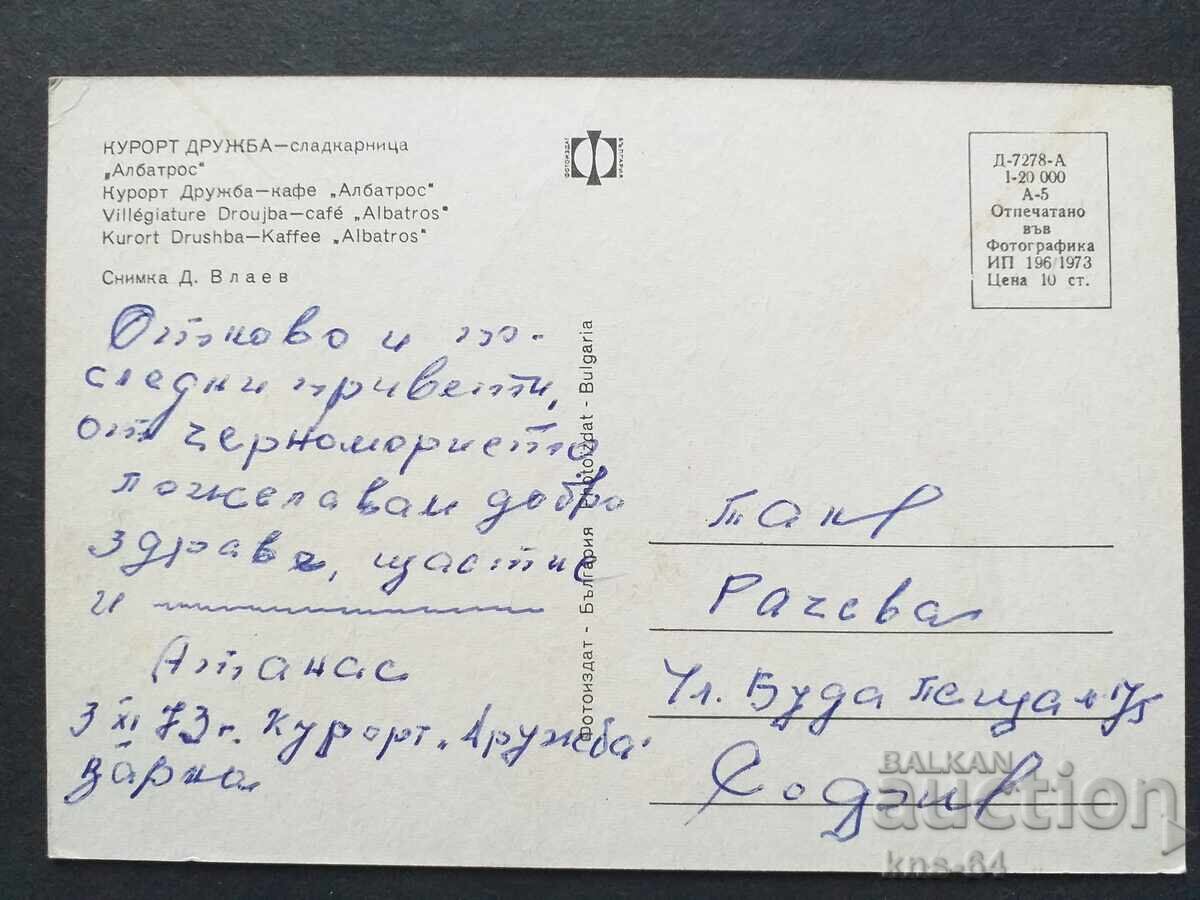 КУРОРТ ДРУЖБА—СЛАДКАРНИЦА
„Албатрос“
Курорт Дружба—кафе „Албатрос“
Villégiature Droujba—café „Albatros“
Kurort Drushba—Kaffee „Albatros“
Снимка Д. Влаев
ФОТОИЗДАТ
БЪЛГАРИЯ
Д-7278-А
1-20 000
А-5
Отпечатано
във
Фотографика
ИП 196/1973
Цена 10 ст.
Отново и по-
следни привети,
от черноморието
пожелавам добро
здраве, щастие
и
Атанас
3 XI 73 г. Курорт „Дружба“
Варна
Фотоиздат - България Photoizdat - Bulgaria
Рачева
Ул. Буда Пеща
София
BALKAN
auction
kns-64